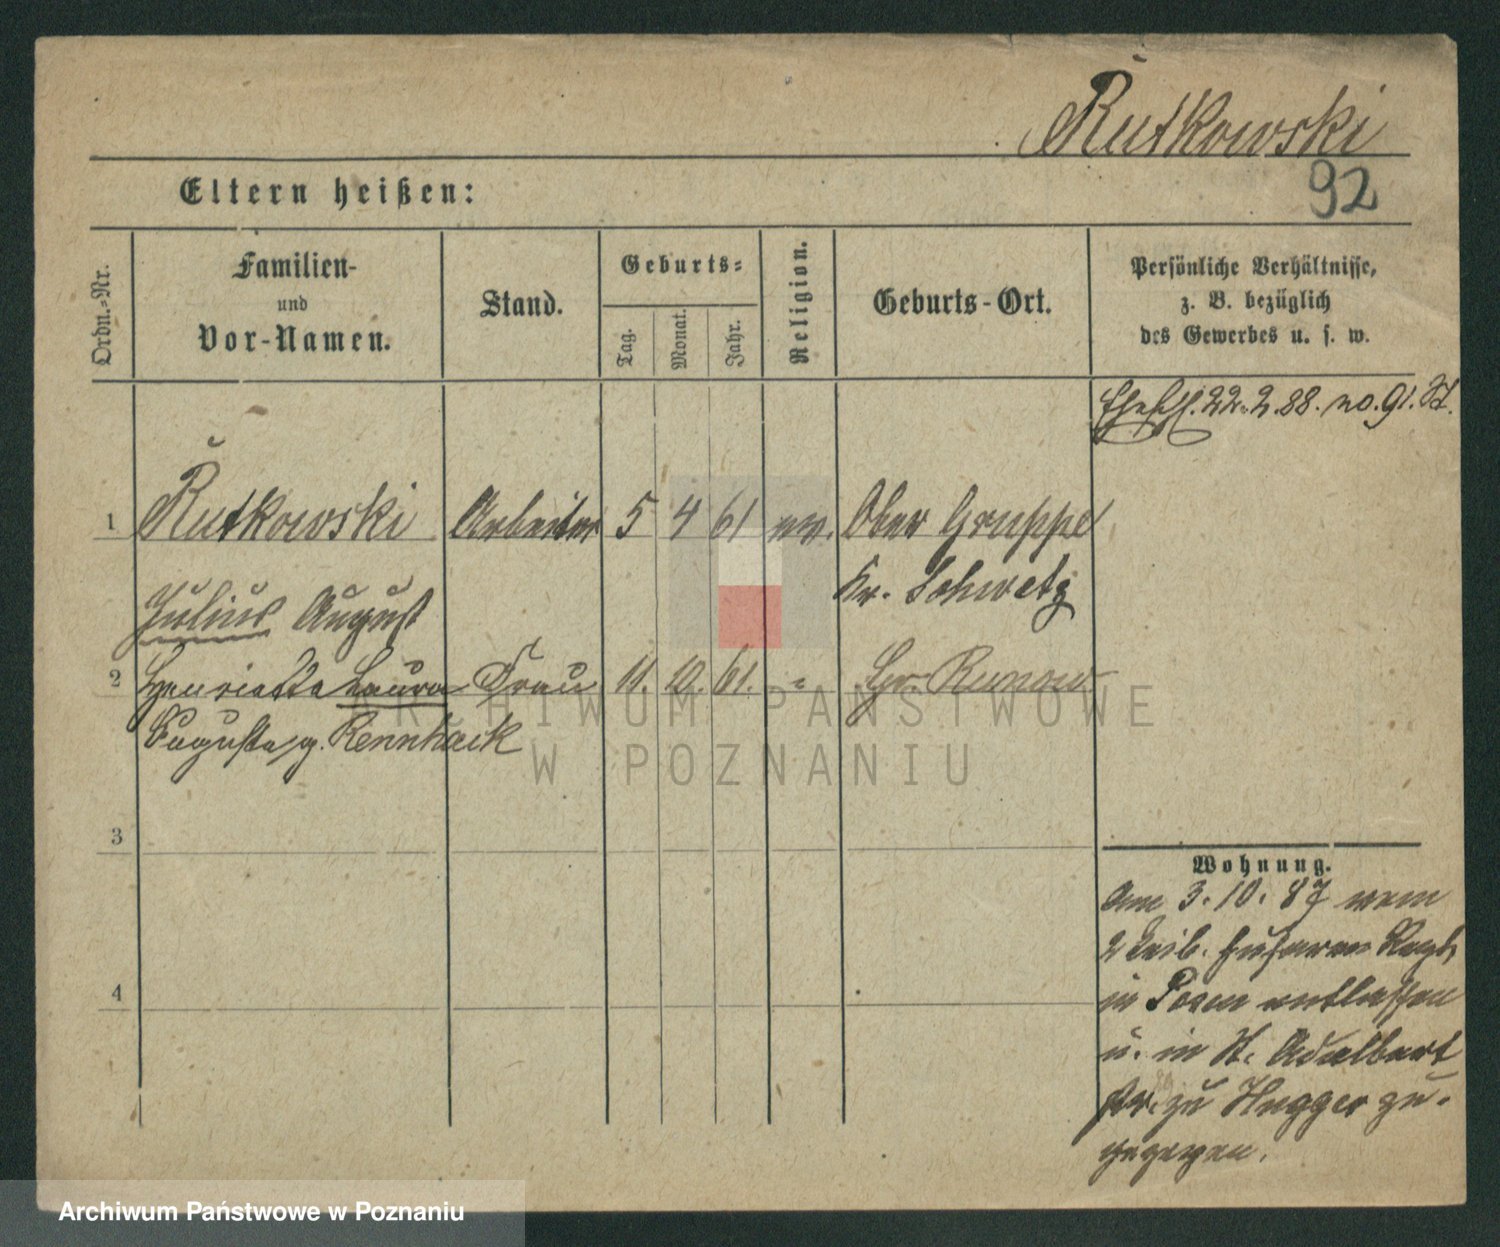 Rutkowski
92
Eltern heißen:
Ordn.-Nr.
Familien-
und
Vor-Namen.
Stand.
Geburts-
Tag.
Monat.
Jahr.
Religion.
Geburts-Ort.
Persönliche Verhältnisse,
z. B. bezüglich
des Gewerbes u. s. w.
22.2.88. no. 91. St.
1 Rutkowski Arbeiter 5 4 61 ev. Ober Gruppe
Kr. Schwetz
Julius August
2 Henriette Laura Frau 11. 10. 61. " Gr. Runow
Augusta, g. Rennhack
3
4
Wohnung.
Am 3. 10. 87 vom
2 Leib. Husaren Regt,
in Posen entlassen
u. in St. Adalbert
str. zu Hugger zu-
gezogen.
ARCHIWUM PAŃSTWOWE
W POZNANIU
Archiwum Państwowe w Poznaniu